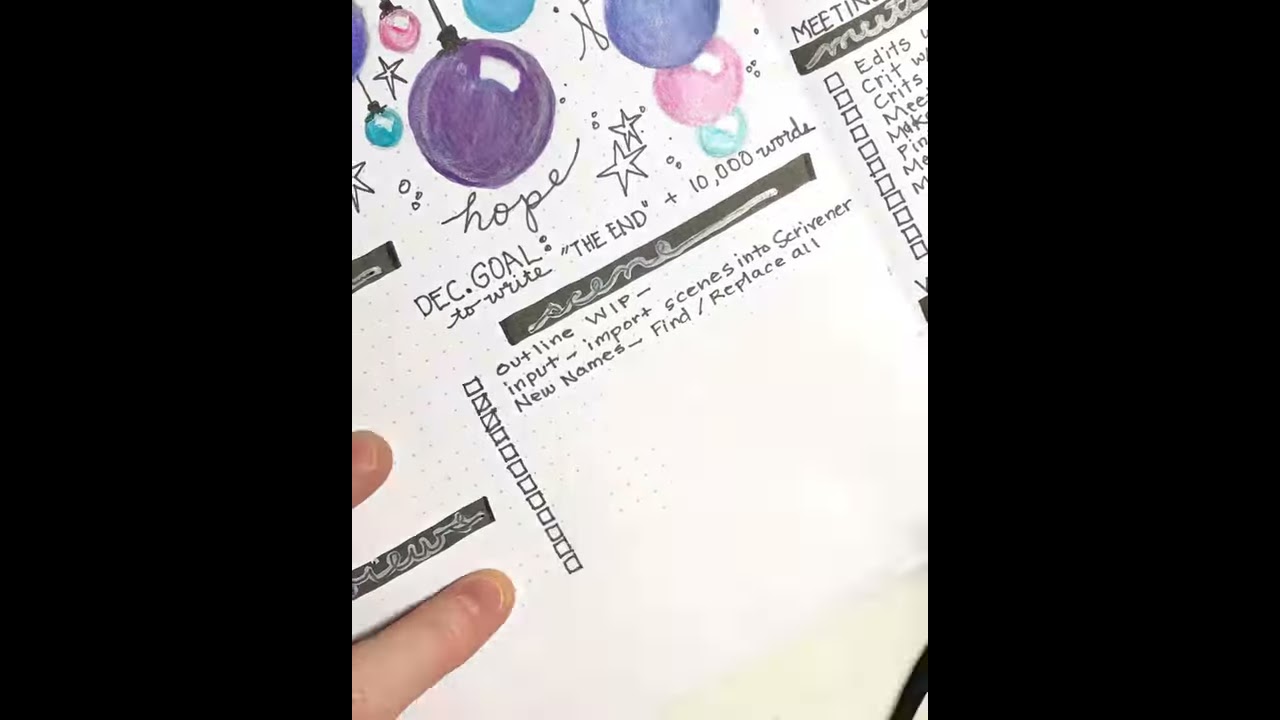 hope
DEC. GOAL:
to write "THE END" + 10,000 words
scene
outline WIP-
input - import scenes into Scrivener
New Names - Find / Replace all
MEETING
Edits
Crit w/
Crits
Mee
Make
Pin
Me
M